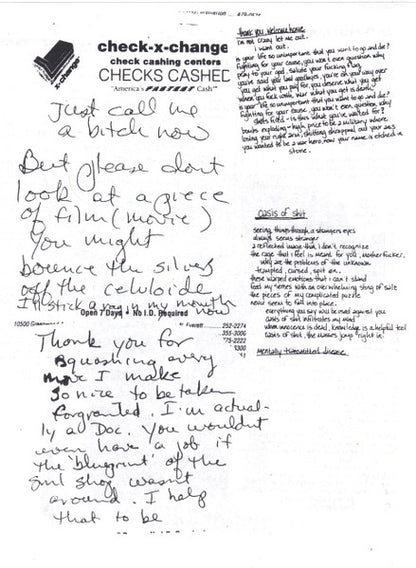 check-x-change
check cashing centers
CHECKS CASHED
"America's FASTEST Cash"
x-change
Just call me
a bitch now
But please dont
look at a piece
of film (movie)
You might
bounce the silver
off the celuloide
I'll stick a rag in my mouth
now
Open 7 Days • No I.D. Required
10500
Everett
252-2274
355-3006
775-2222
3300
Thank you for
squashing every
move I make
So nice to be taken
forgranted. I'm actual-
ly a Doc. You wouldnt
even have a job if
the 'blueprint' of the
around. I help
that to be
CHECKS CASHED
thank you welcome home
I'm not crazy let me out.
I want out.
is your life so unimportant that you want to go and die?
Fighting for your cause, you won't even question why
pray to your god. salute your fucking flag
you've said your last goodbyes, you're on your way over
you get what you pay for, you deserve what you get
when you fuck with war what you get is death
is your life so unimportant that you want to go and die?
Fighting for your cause, you won't even question why
shots fired - is this what you've waited for?
bombs exploding - high price to be a military whore
losing your right arm, shitting shrapnel out your ass
you wanted to be a war hero, now your name is etched in
stone.
oasis of shit
seeing things through a strangers eyes
always seems stranger
a reflected image that I don't recognize
the rage that I feel is meant for you, motherfucker.
why are the problems of the unknown
trampled, cursed, spit on.
these warped emotions that I can't stand
feed my nerves with an overwhelming sting of shit
the pieces of my complicated puzzle
never seem to fall into place.
everything you say will be used against you
oasis of shit infiltrates my mind
when innocence is dead, knowledge is a helpful tool
oasis of shit, the waters jump right in.
mentally transmitted disease